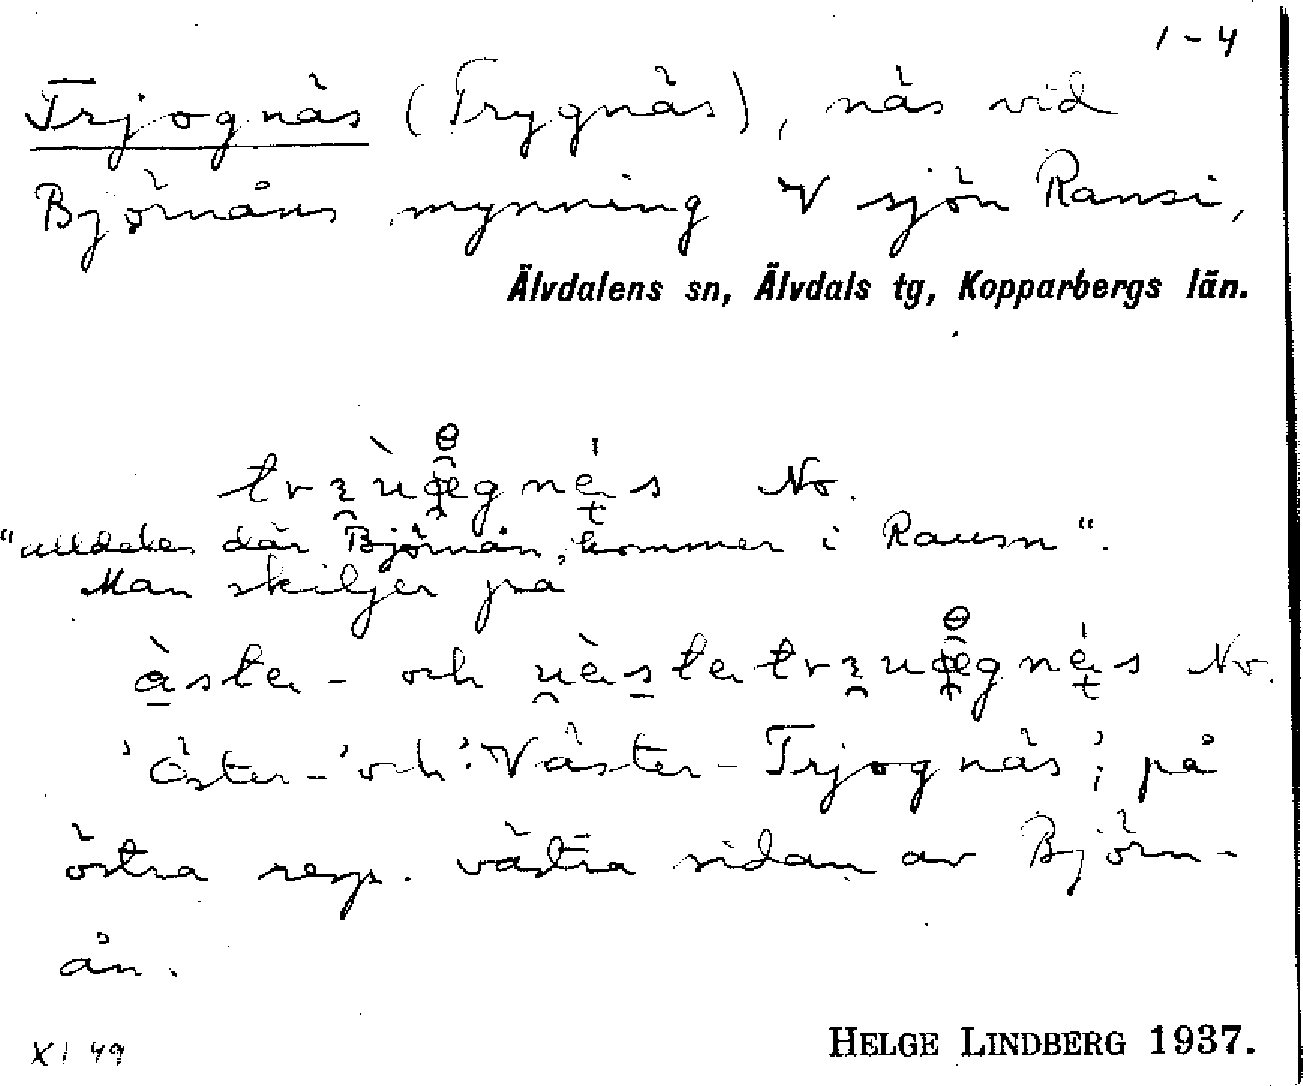 1-4
Trjognäs (Trygnäs), näs vid
Björnåns mynning V sjön Ransi,
Älvdalens sn, Älvdals tg, Kopparbergs län.
No.
"alldeles där Björnån, kommer i Rausn".
Man skiljer på
àster- och No.
'Öster-' och 'Väster-Trjognäs'; på
östra resp. västra sidan av Björn-
ån.
XI 49
HELGE LINDBERG 1937.